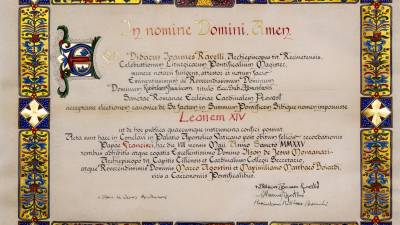 In nomine Domini. Amen.
Ego Didacus Ioannes Ravelli, Archiepiscopus tit. Recinetensis,
Celebrationum Liturgicarum Pontificalium Magister,
munere notarii fungens, attestor et notum facio
Eminentissimum ac Reverendissimum Dominum
Dominum
Sanctae Romanae Ecclesiae Cardinalem Prevost
acceptasse electionem canonice de Se factam in Summum Pontificem Sibique nomen imposuisse
Leonem XIV
ut de hoc publica quaecumque instrumenta confici possint.
Acta sunt haec in Conclavi in Palatio Apostolico Vaticano post obitum felicis recordationis
Papae Francisci, hac die VIII mensis Maii Anno Sancto MMXXV
testibus adhibitis atque rogatis Excellentissimo Domino Ilson de Jesus Montanari
Archiepiscopo tit. Capitis Cillensis et Cardinalium Collegii Secretario,
atque Reverendissimis Dominis Marco Agostini et Maximiliano Matthaeo Boiardi,
viris a Caeremoniis Pontificalibus.